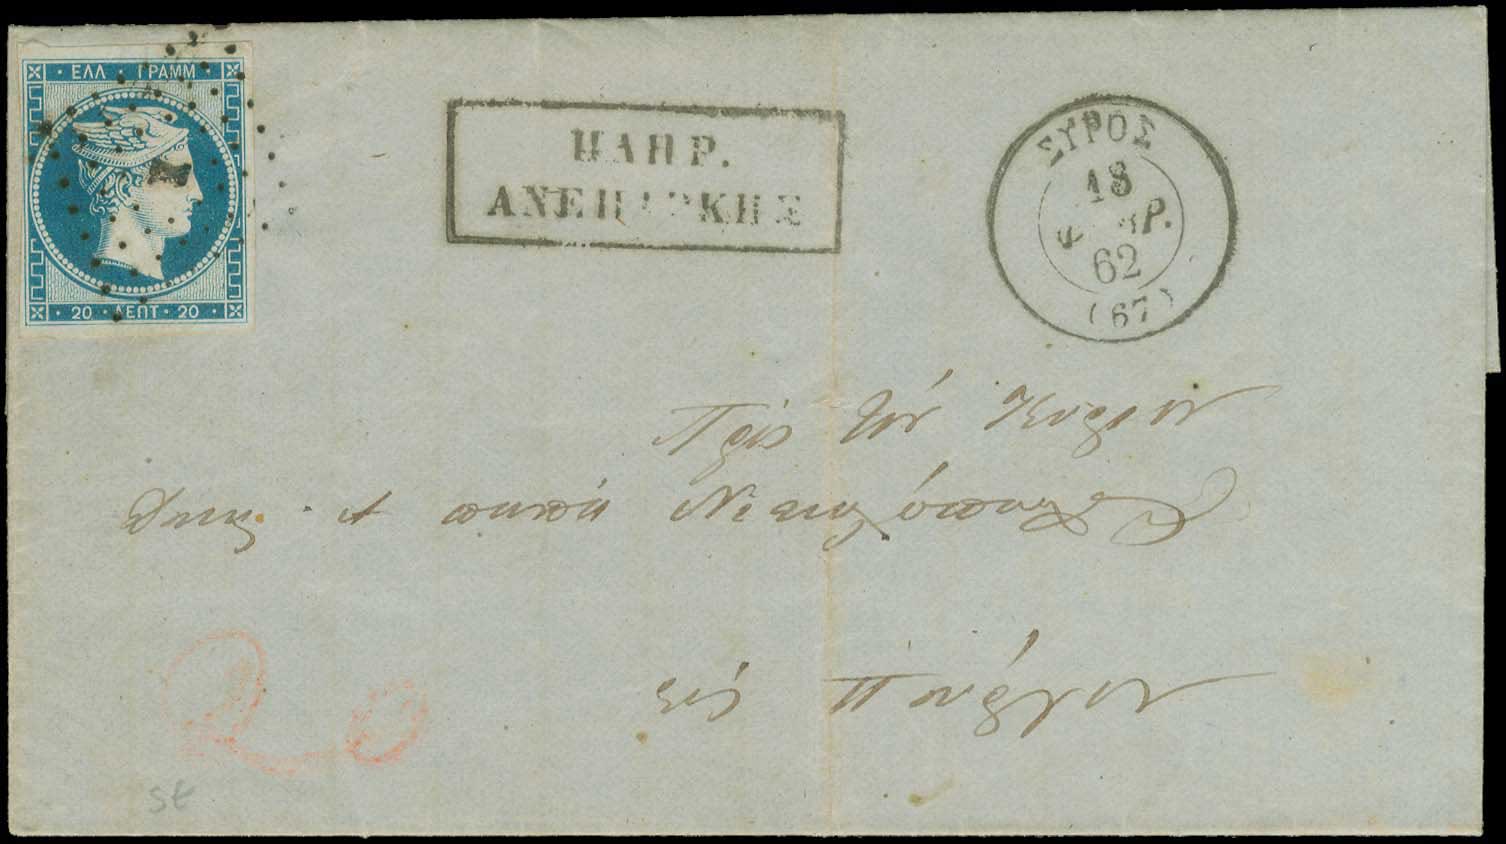 ΕΛΛ ΓΡΑΜΜ
20 ΛΕΠΤ 20
ΠΛΗΡ.
ΑΝΕΠΑΡΚΗΣ
ΣΥΡΟΣ
18
ΦΕΒΡ.
62
(67)
Πρὸς τὸν Κύριον
παπᾶ
εἰς Πύργον
20
SE